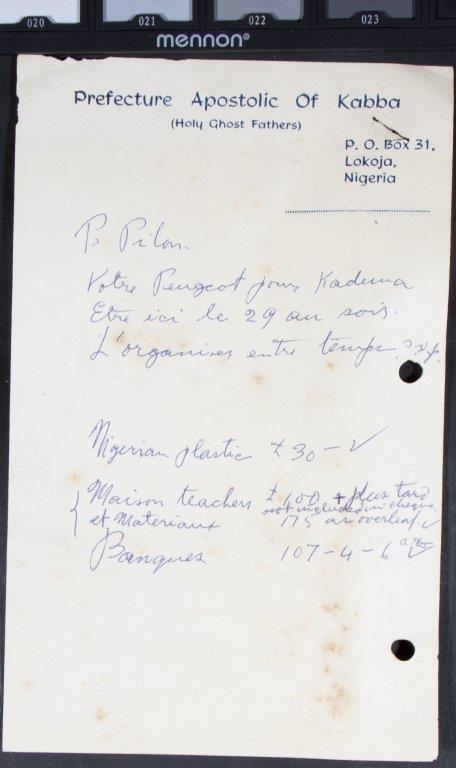 020 021 022 023
mennon®
Prefecture Apostolic Of Kabba
(Holy Ghost Fathers)
P. O. Box 31,
Lokoja,
Nigeria
P. Pilon.
Votre Peugeot pour Kaduna
Etre ici le 29 au soir.
L'organiser entre temps
Nigerian plastic £ 30 -
Maison teachers £ 600 + plus tard
not included in cheque
et Materiaux 175 as overleaf.
Banques 107-4-6